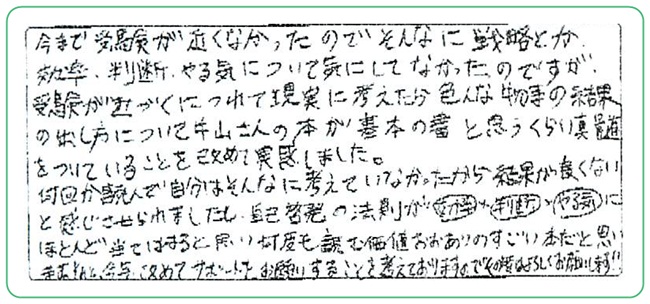 今まで受験が近くなかったのでそんなに戦略とか、
効率、判断、やる気について気にしてなかったのですが、
受験が近かくにつれて現実に考えたら色んな物事の結果
の出し方について牛山さんの本が基本の書と思うくらい真髄
をついていることを改めて実感しました。
何回か読んで自分はそんなに考えていなかったから結果が良くない
と感じさせられましたし、自己啓発の法則が 判断 やる気 に
ほとんど当てはまると思い何度も読む価値おおありのすごい本だと思い
ました。今後、改めてサポートをお願いすることを考えておりますのでその際はよろしくお願いします!!